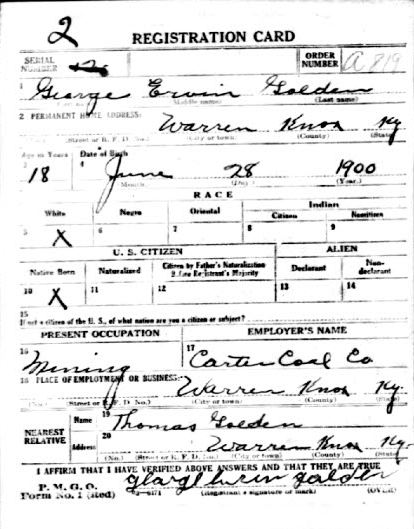 2
REGISTRATION CARD
SERIAL NUMBER
ORDER NUMBER A 819
1 George Ervin Golden
(Middle name) (Last name)
2 PERMANENT HOME ADDRESS: Warren Knox Ky
(Street or R. F. D. No.) (City or town) (County) (State)
Age in Years Date of Birth
3 18 4 June 28 1900
(Month) (Day) (Year.)
RACE
White Negro Oriental Indian
Citizen Noncitizen
5 X 6 7 8 9
U. S. CITIZEN ALIEN
Native Born Naturalized Citizen by Father's Naturalization Before Registrant's Majority Declarant Non-declarant
10 X 11 12 13 14
15
If not a citizen of the U. S., of what nation are you a citizen or subject?
PRESENT OCCUPATION EMPLOYER'S NAME
16 Mining 17 Carter Coal Co
18 PLACE OF EMPLOYMENT OR BUSINESS: Warren Knox Ky.
(No.) (Street or R. F. D. No.) (City or town) (County) (State)
NEAREST RELATIVE
Name 19 Thomas Golden
Address 20 Warren Knox Ky.
(No.) (Street or R. F. D. No.) (City or town) (County) (State)
I AFFIRM THAT I HAVE VERIFIED ABOVE ANSWERS AND THAT THEY ARE TRUE
P. M. G. O.
Form No. 1 (Red) (Registrant's signature or mark) (OVER)